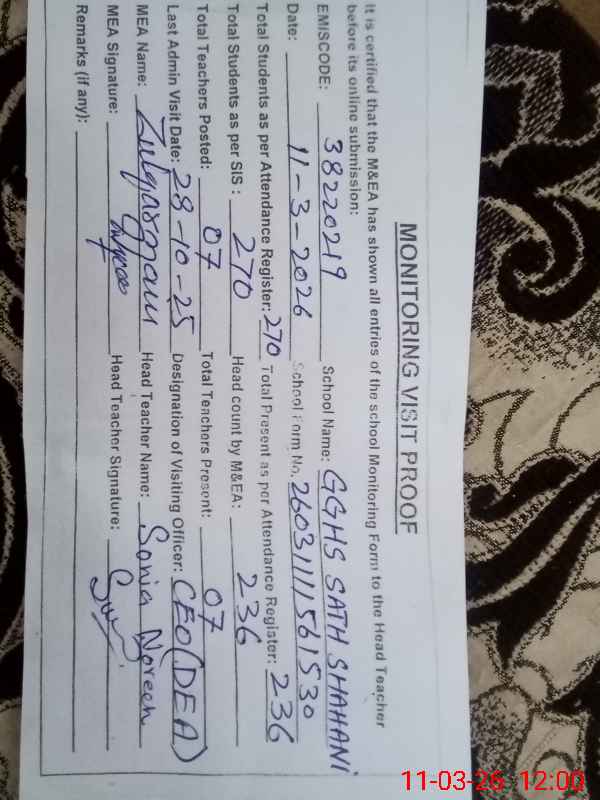 MONITORING VISIT PROOF
It is certified that the M&EA has shown all entries of the school Monitoring Form to the Head Teacher
before its online submission:
EMISCODE: 38220219 School Name: GGHS SATH SHAHANI
Date: 11-3-2026 School Form No. 26031111561530
Total Students as per Attendance Register: 270 Total Present as per Attendance Register: 236
Total Students as per SIS: 270 Head count by M&EA: 236
Total Teachers Posted: 07 Total Teachers Present: 07
Last Admin Visit Date: 28-10-25 Designation of Visiting Officer: CEO(DEA)
MEA Name: Zulqarnain Head Teacher Name: Sonia Noreen
MEA Signature: Head Teacher Signature:
Remarks (if any):
11-03-26 12:00